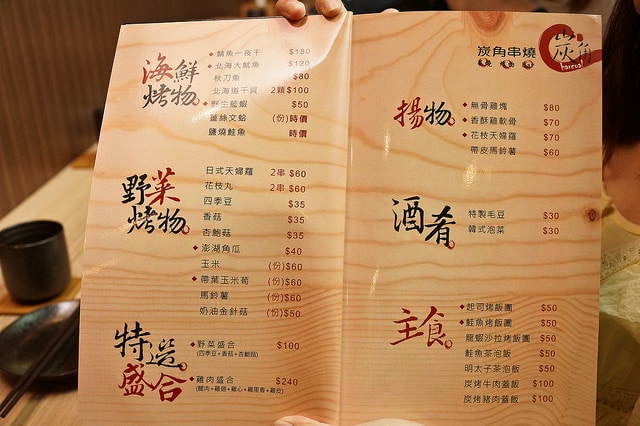 海鮮
烤物
◆鯖魚一夜干 $180
◆北海大魷魚 $120
秋刀魚 $80
北海道干貝 2顆$100
◆野生藍蝦 $50
蘆絲文蛤 (份)時價
鹽燒鮭魚 時價
野菜
烤物
日式天婦羅 2串$60
花枝丸 2串$60
四季豆 $35
香菇 $35
杏鮑菇 $35
◆澎湖角瓜 $40
玉米 (份)$60
◆帶葉玉米筍 (份)$60
馬鈴薯 (份)$60
奶油金針菇 (份)$50
特選
盛合
◆野菜盛合 $100
(四季豆+香菇+杏鮑菇)
◆雞肉盛合 $240
炭角串燒
炭角
揚物
◆無骨雞塊 $80
◆香酥雞軟骨 $70
◆花枝天婦羅 $70
帶皮馬鈴薯 $60
酒肴
特製毛豆 $30
韓式泡菜 $30
主食
◆起司烤飯團 $50
◆鮭魚烤飯團 $50
龍蝦沙拉烤飯團 $50
鮭魚茶泡飯 $50
明太子茶泡飯 $50
炭烤牛肉蓋飯 $100
炭烤豬肉蓋飯 $100